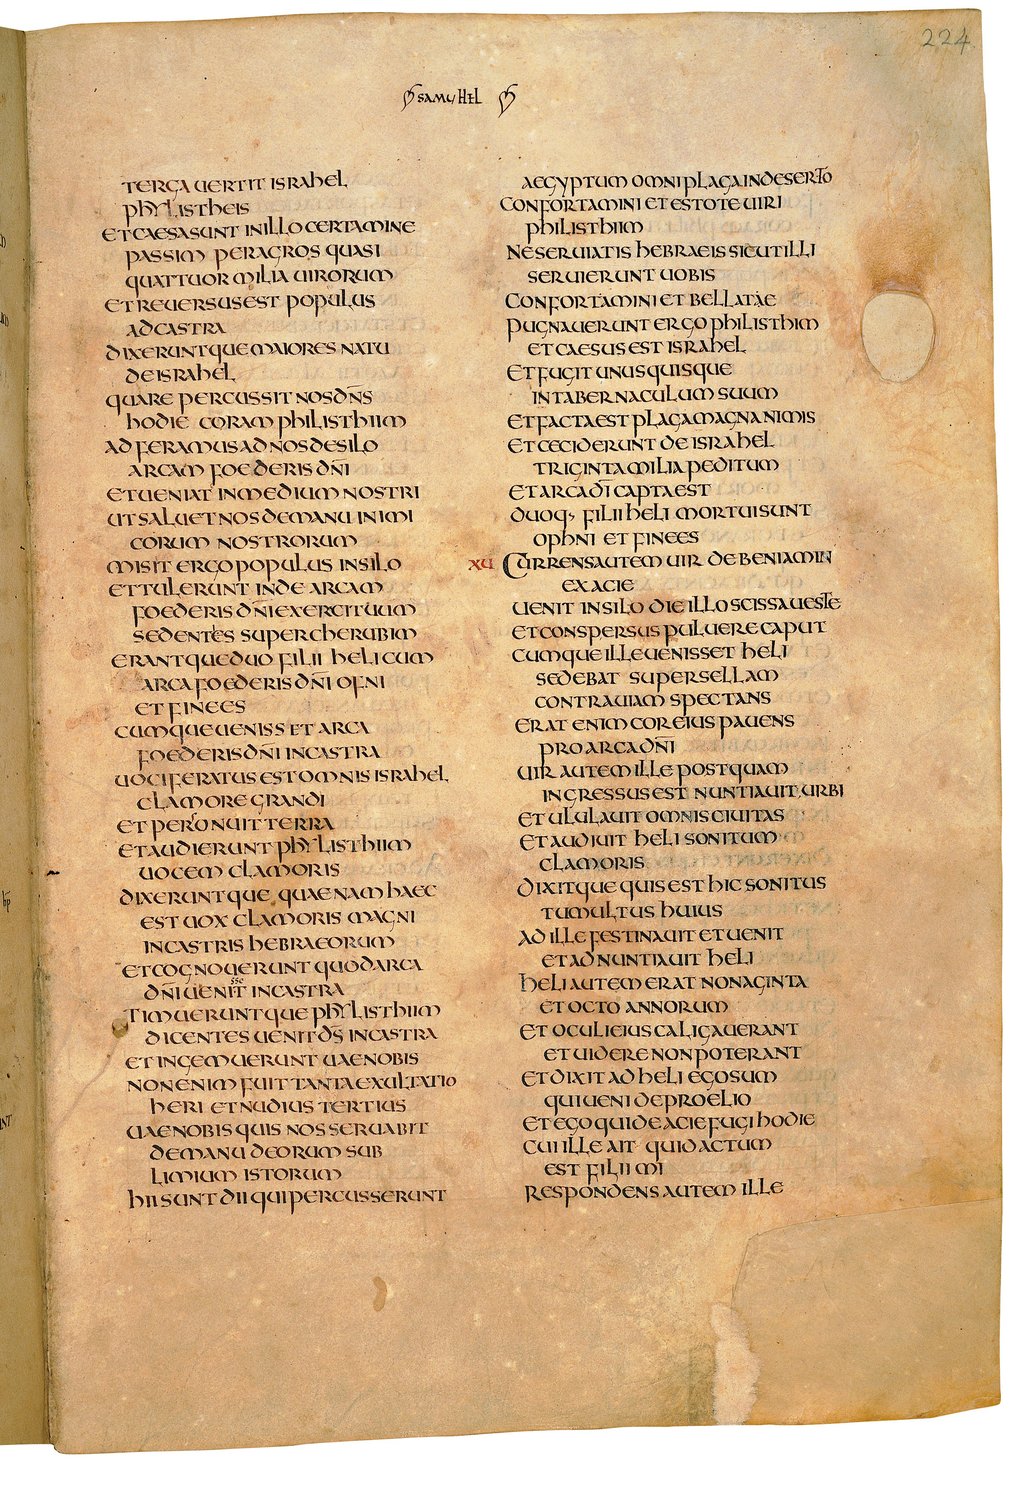 224
SAMUHEL
TERGA UERTIT ISRAHEL
PHYLISTHEIS
ET CAESA SUNT IN ILLO CERTAMINE
PASSIM PER AGROS QUASI
QUATTUOR MILIA UIRORUM
ET REUERSUS EST POPULUS
AD CASTRA
DIXERUNTQUE MAIORES NATU
DE ISRAHEL
QUARE PERCUSSIT NOS DN̄S
HODIE CORAM PHILISTHIIM
AD FERAMUS AD NOS DE SILO
ARCAM FOEDERIS DN̄I
ET UENIAT IN MEDIUM NOSTRI
UT SALUET NOS DE MANU INIMI
CORUM NOSTRORUM
MISIT ERGO POPULUS IN SILO
ET TULERUNT INDE ARCAM
FOEDERIS DN̄I EXERCITUUM
SEDENTES SUPER CHERUBIM
ERANTQUE DUO FILII HELI CUM
ARCA FOEDERIS DN̄I OFNI
ET FINEES
CUMQUE UENISSET ARCA
FOEDERIS DN̄I IN CASTRA
UOCIFERATUS EST OMNIS ISRAHEL
CLAMORE GRANDI
ET PERSONUIT TERRA
ET AUDIERUNT PHYLISTHIIM
UOCEM CLAMORIS
DIXERUNTQUE QUAENAM HAEC
EST UOX CLAMORIS MAGNI
IN CASTRIS HEBRAEORUM
ET COGNOUERUNT QUOD ARCA
DN̄I UENIT IN CASTRA
TIMUERUNTQUE PHYLISTHIIM
DICENTES UENIT D̄S IN CASTRA
ET INGEMUERUNT UAE NOBIS
NON ENIM FUIT TANTA EXULTATIO
HERI ET NUDIUS TERTIUS
UAE NOBIS QUIS NOS SERUABIT
DE MANU DEORUM SUB
LIMIUM ISTORUM
HII SUNT DII QUI PERCUSSERUNT
AEGYPTUM OMNI PLAGA IN DESERTO
CONFORTAMINI ET ESTOTE UIRI
PHILISTHIIM
NE SERUIATIS HEBRAEIS SICUT ILLI
SERUIERUNT UOBIS
CONFORTAMINI ET BELLATAE
PUGNAUERUNT ERGO PHILISTHIM
ET CAESUS EST ISRAHEL
ET FUGIT UNUSQUISQUE
IN TABERNACULUM SUUM
ET FACTA EST PLAGA MAGNA NIMIS
ET CECIDERUNT DE ISRAHEL
TRIGINTA MILIA PEDITUM
ET ARCA D̄I CAPTA EST
DUOQ; FILII HELI MORTUI SUNT
OPHNI ET FINEES
XU CURRENS AUTEM UIR DE BENIAMIN
EX ACIE
UENIT IN SILO DIE ILLO SCISSA UESTE
ET CONSPERSUS PULUERE CAPUT
CUMQUE ILLE UENISSET HELI
SEDEBAT SUPER SELLAM
CONTRA UIAM SPECTANS
ERAT ENIM COR EIUS PAUENS
PRO ARCA DN̄I
UIR AUTEM ILLE POSTQUAM
INGRESSUS EST NUNTIAUIT URBI
ET ULULAUIT OMNIS CIUITAS
ET AUDIUIT HELI SONITUM
CLAMORIS
DIXITQUE QUIS EST HIC SONITUS
TUMULTUS HUIUS
AD ILLE FESTINAUIT ET UENIT
ET ADNUNTIAUIT HELI
HELI AUTEM ERAT NONAGINTA
ET OCTO ANNORUM
ET OCULI EIUS CALIGAUERANT
ET UIDERE NON POTERANT
ET DIXIT AD HELI EGO SUM
QUI UENI DE PROELIO
ET EGO QUI DE ACIE FUGI HODIE
CUI ILLE AIT QUID ACTUM
EST FILII MI
RESPONDENS AUTEM ILLE